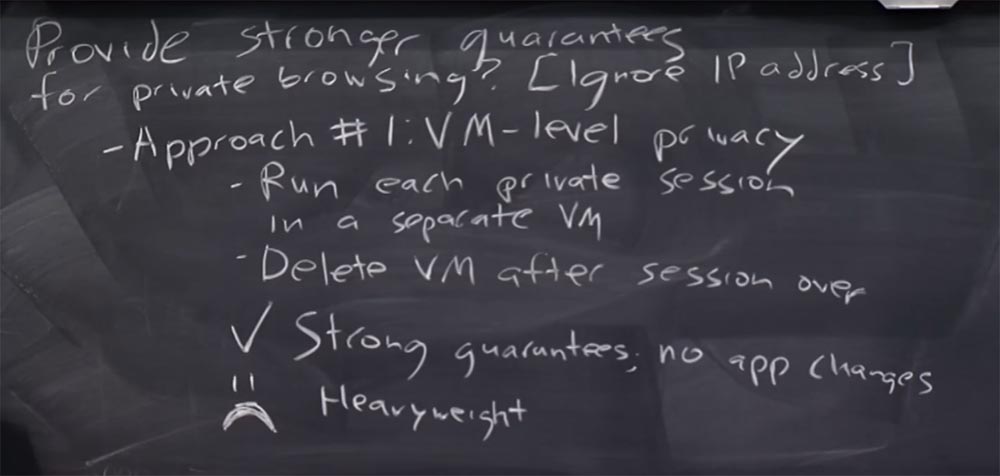 Provide stronger guarantees
for private browsing? [Ignore IP address]
- Approach #1: VM-level privacy
- Run each private session
in a separate VM
- Delete VM after session over
✓ Strong guarantees; no app changes
Heavyweight